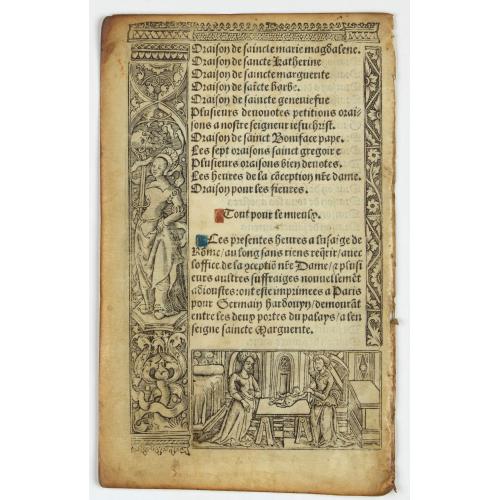 Oraison de saincte marie magdalene.
Oraison de sancte Katherine
Oraison de saincte marguerite
Oraison de saīcte barbe.
Oraison de saincte geneuiefue
Plusieurs deuouotes petitions orai-
sons a nostre seigneur iesuchrist.
Oraison de sainct Boniface pape.
Les sept oraisons sainct gregoire
Plusieurs oraisons bien deuotes.
Les heures de la cōception nr̄e dame.
Oraison pour les fieures.
Tout pour le mieulx.
Les presentes heures a lusaige de
Rōme/au long sans riens req̄rir/auec
loffice de la 9ceptiō nr̄e Dame/⁊ plusi
eurs aultres suffraiges nouuellement
adioustes: ont este imprimees a Paris
pour Germain hardouyn/demourāt
entre les deux portes du palays/a len
seigne saincte Marguerite.